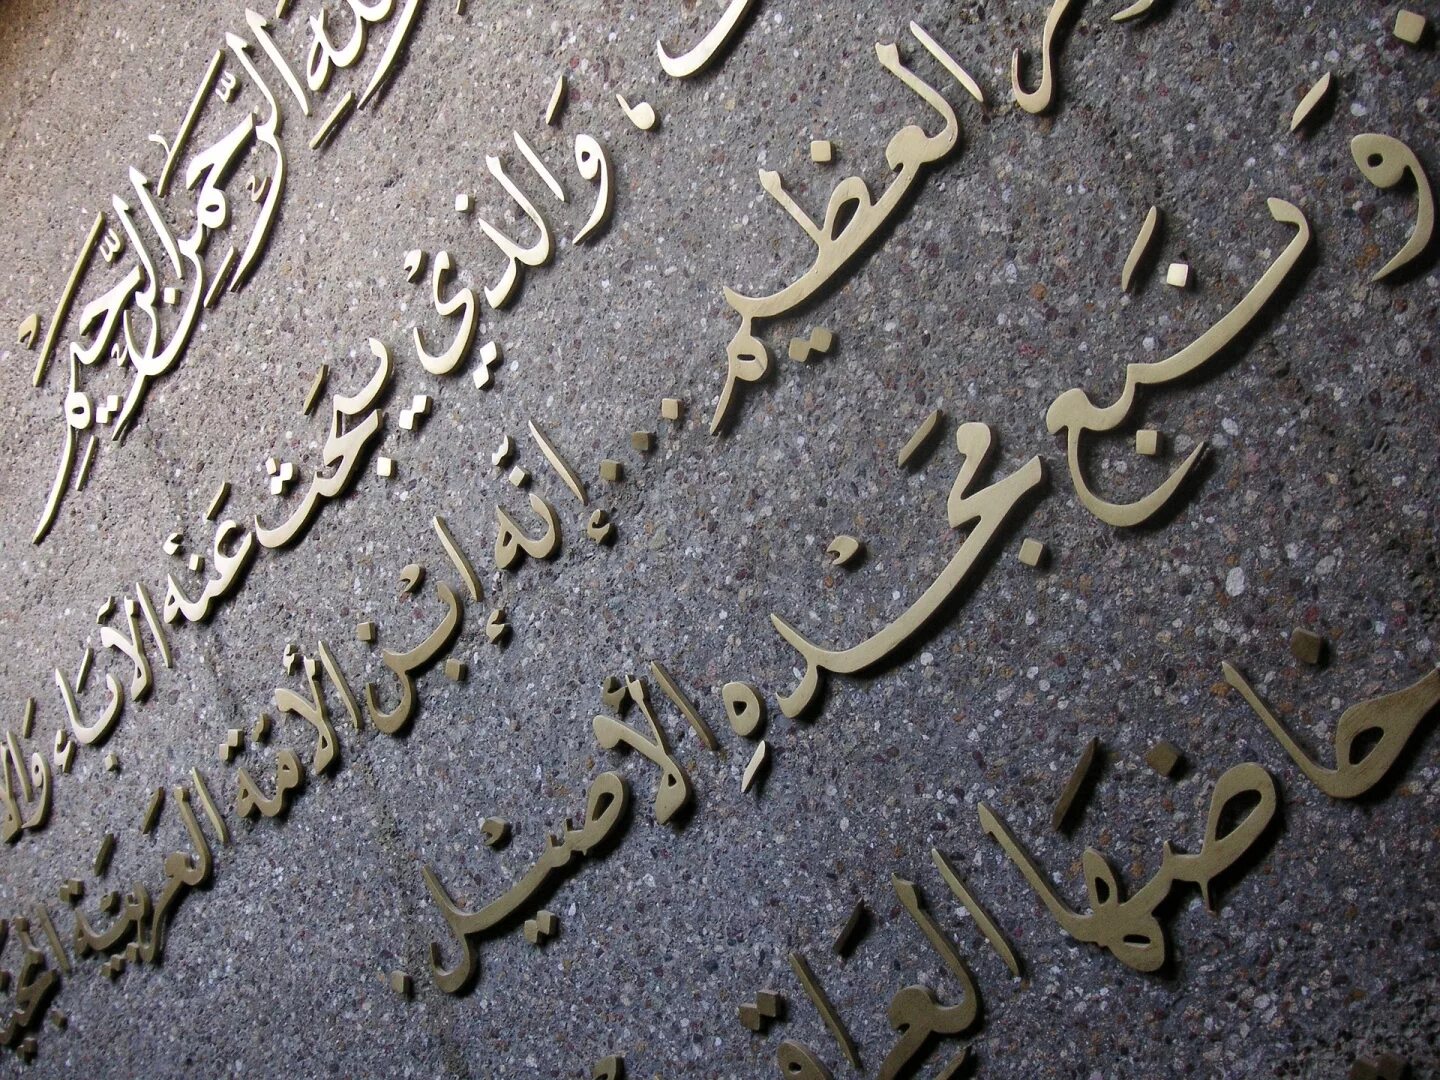 الرَّحمٰنِ الرَّحِيمِ
وَالذي يبحَث عَنه الآبَاء
العظيم .... إنّه إبْن الأمّة العَربيَّة
وَنَبع مَجْدهِ الأصيْل.
خاضَها